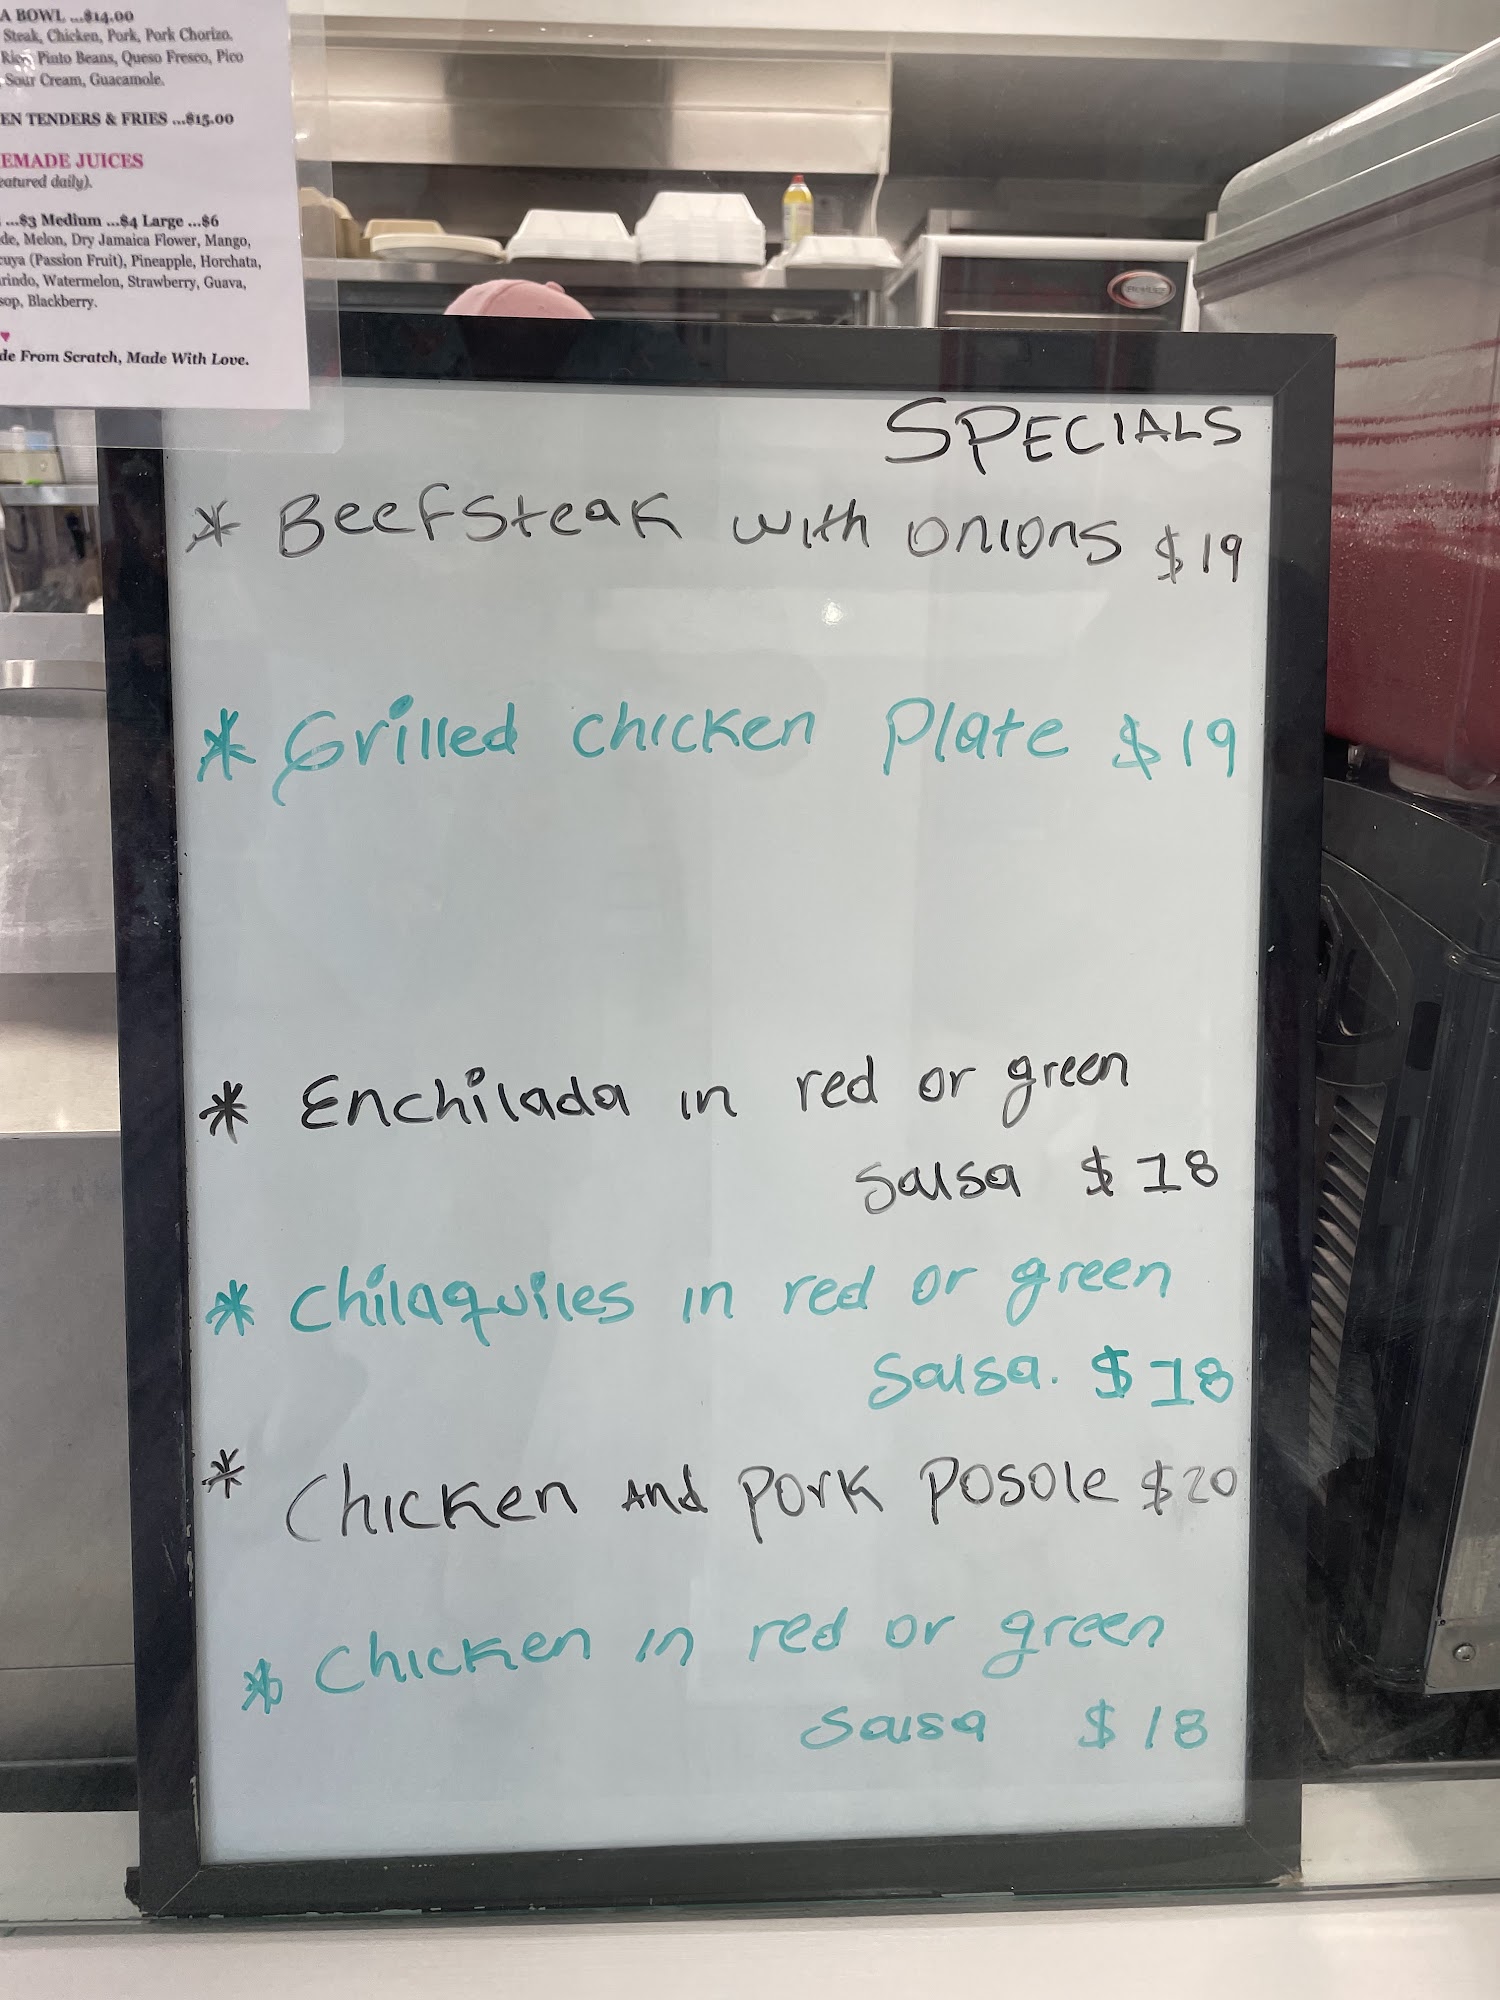 A BOWL ...$14.00
Steak, Chicken, Pork, Pork Chorizo.
Rice, Pinto Beans, Queso Fresco, Pico
Sour Cream, Guacamole.
EN TENDERS & FRIES ...$15.00
EMADE JUICES
eatured daily).
...$3 Medium ...$4 Large ...$6
de, Melon, Dry Jamaica Flower, Mango,
cuya (Passion Fruit), Pineapple, Horchata,
rindo, Watermelon, Strawberry, Guava,
sop, Blackberry.
♥
de From Scratch, Made With Love.
SPECIALS
* Beefsteak with onions $19
* Grilled chicken Plate $19
* Enchilada in red or green
salsa $18
* Chilaquiles in red or green
Salsa. $18
* Chicken And Pork Posole $20
* Chicken in red or green
Salsa $18